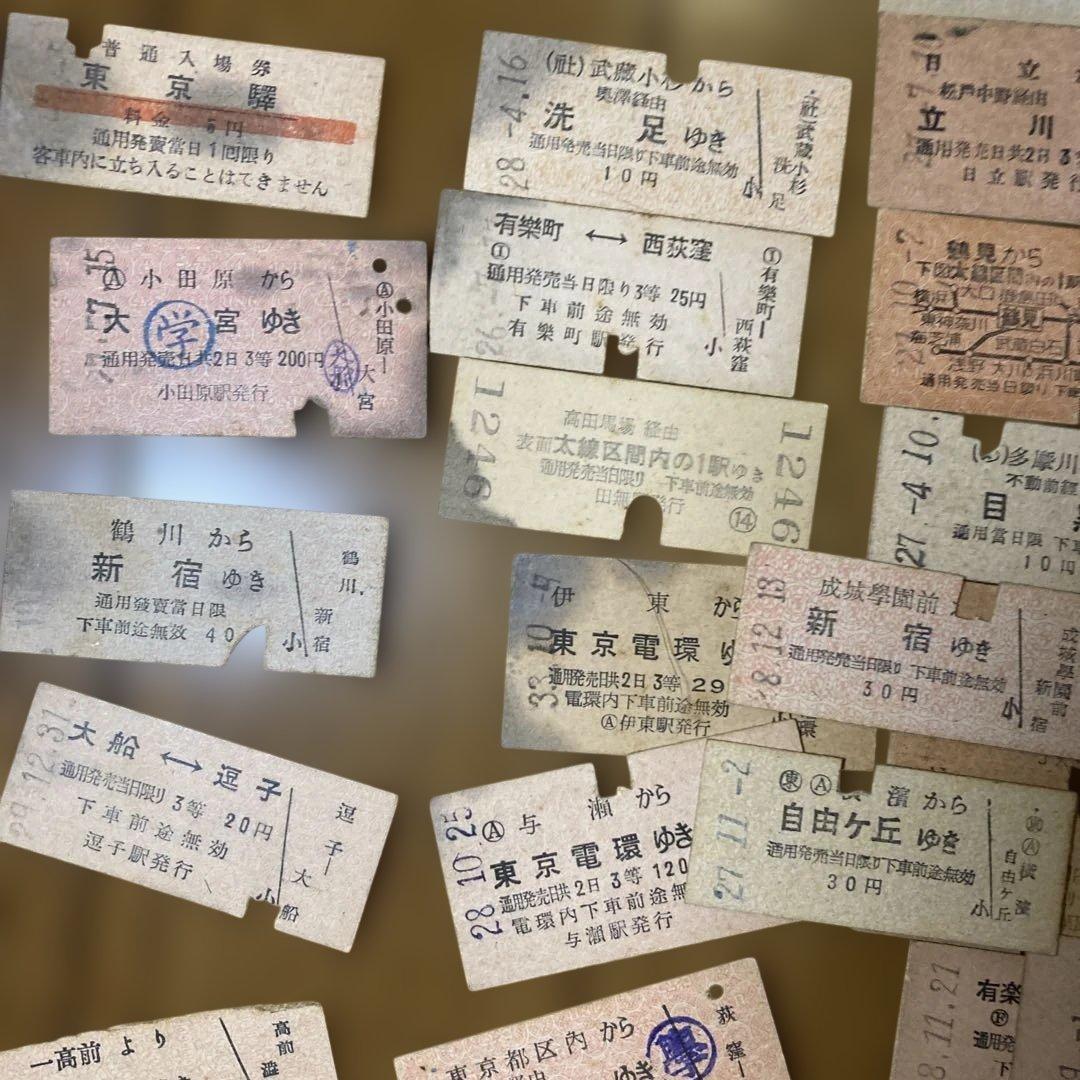 普通入場券
東京驛
料金 5円
通用発賣當日1回限り
客車内に立ち入ることはできません
Ⓐ小田原 から
大宮 ゆき
学
通用発売日共2日 3等 200円
小田原駅発行
Ⓐ小田原―
大宮
鶴川 から
新宿 ゆき
通用發賣當日限
下車前途無效 40
小
鶴川
新宿
12.31
大船 ⟷ 逗子
通用発売当日限り 3等 20円
下車前途無効
逗子駅発行
小
逗子―
大船
一高前 より
高前
28 -4.16
(社)武蔵小杉から
奥澤経由
洗足 ゆき
通用発売当日限り下車前途無効
10円
小
(社)武蔵小杉
洗足
有樂町 ⟷ 西荻窪
①
通用発売当日限り3等 25円
下車前途無効
有樂町駅発行
小
①有樂町―
西荻窪
1246
高田馬場 経由
表面太線区間内の1駅ゆき
通用発売当日限り 下車前途無効
田無駅発行
⑭
1246
33 10 -4
伊東 から
東京電環
通用発売日共2日 3等 29
電環内下車前途無効
Ⓐ伊東駅発行
環
28 10 25
Ⓐ与瀬 から
東京電環 ゆき
通用発売日共2日 3等 120
電環内下車前途無
与瀬駅発行
東京都区内 から
ゆき
學
荻窪―
日立
松戸中野経由
立川
通用発売日共2日 3
日立駅発行
鶴見から
下図太線区間内の1
大口
横浜
東神奈川
鶴見
武蔵白石
浅野 大川
通用発売当日限り 下
27 -4 10
多摩川
不動前経
目
通用当日限 下
10円
8 12 18
成城學園前
新宿 ゆき
通用発売当日限り 下車前途無効
30円
小
成城學園前
新宿
27 11 -2
東 Ⓐ 横濱 から
自由ケ丘 ゆき
通用発売当日限り下車前途無効
30円
小
Ⓐ横濱
自由ケ丘
8.11.21
有楽
通用発
下